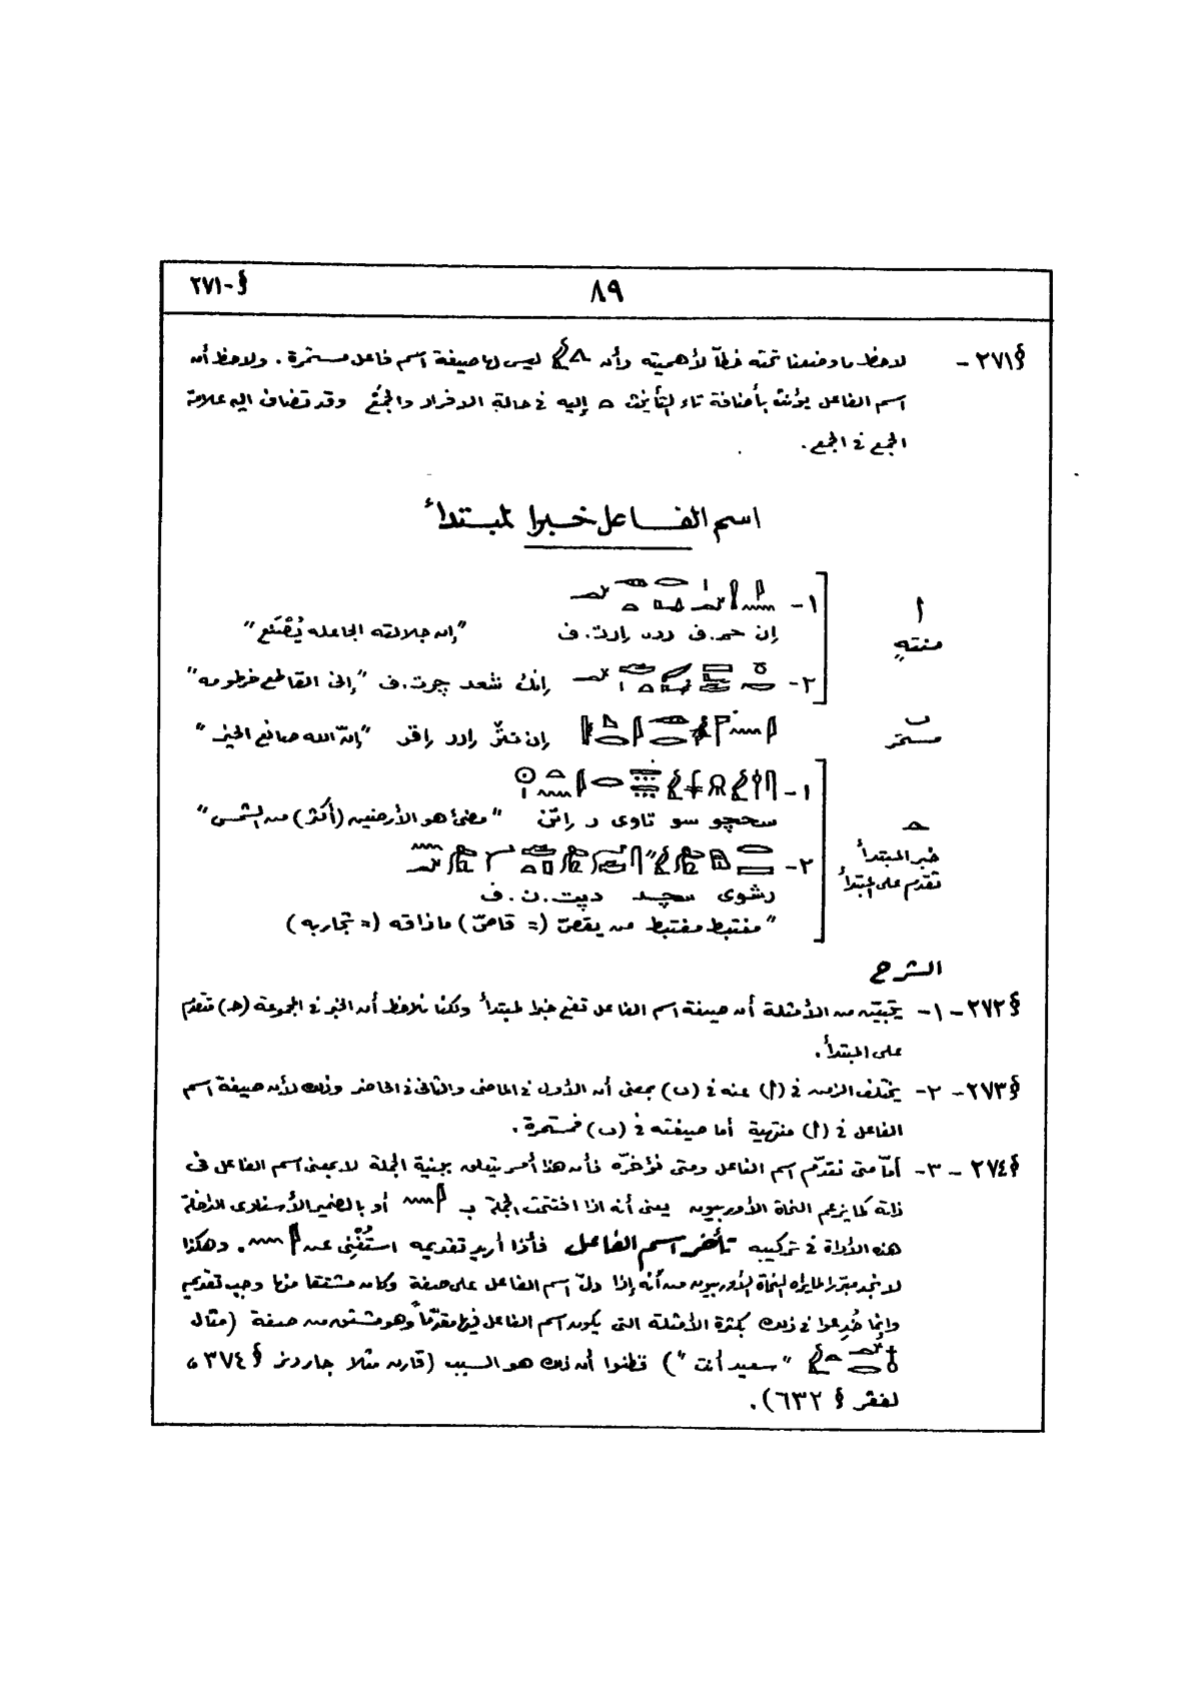 §-٢٧١
٨٩
§٢٧١ - لاحظ ما وضعنا تحته خطاً لأهميته وأن ليس لها صيغة اسم فاعل مستمرة. ولاحظ أن
اسم الفاعل يؤنث بأضافة تاء التأنيث إليه في حالة الافراد والجمع وقد تضاف اليه علامة
الجمع في الجمع.
اسم الفاعل خبرا لمبتدأ
أ
منتهٍ
١-
إن حم.ف "إن جلالته الجاعله يُصْنَع"
٢- إنك شعد .ف "إنى القاطع خرطومه"
ب
مستمر
إن نتر إارر إاقر "إنّ الله صانع الخير"
ح
خبر المبتدأ
تقدم على المبتدأ
١-
سحچو سو تاوى ر "مضئ هو الأرضين (أكثر) من الشمس"
٢-
رشوى سچد دپت.ن.ف
"مغتبط مغتبط من يقصّ (= قاصّ) ماذاقه (= تجاربه)
الشرح
§٢٧٢ - ١- يتبيّن من الأمثلة أن صيغة اسم الفاعل تقع خبرا لمبتدأ ولكنا نلاحظ أن الخبر في المجموعة (حـ) متقدم
على المبتدأ.
§٢٧٣ - ٢- يختلف الزمن في (أ) عنه في (ب) بمعنى أن الأول في الماضى والثانى في الحاضر وذلك لأن صيغة اسم
الفاعل في (أ) منتهية أما صيغته في (ب) فمستمرة.
§٢٧٤ - ٣- أمّا متى نقدّم اسم الفاعل ومتى نؤخرّه فأن هذا أمر يتعلق ببنية الجملة لا بمعنى اسم الفاعل فى
ذاته كما يزعم النحاة الأوربيون يعنى أنه اذا افتتحت الجملة بـ أو بالضمير الأسنادى الداخلة
هذه الأداة في تركيبه تأخر اسم الفاعل فأذا أريد تقديمه استُغْنِى عن . وهكذا
لا نجد مبررا لما يراه النحاة الأوربيون من أنه إذا دلّ اسم الفاعل على صفة وكان مشتقا منها وجب تقديمه
وإنما خُدِعوا في ذلك بكثرة الأمثلة التى يكون اسم الفاعل فيها مقدّماً وهو مشتق من صفة (مثال
"سعيد أنت") فظنوا أن ذلك هو السبب (قارن مثلا جاردنر § ٣٧٤ ،
لفقر § ٦٣٢).